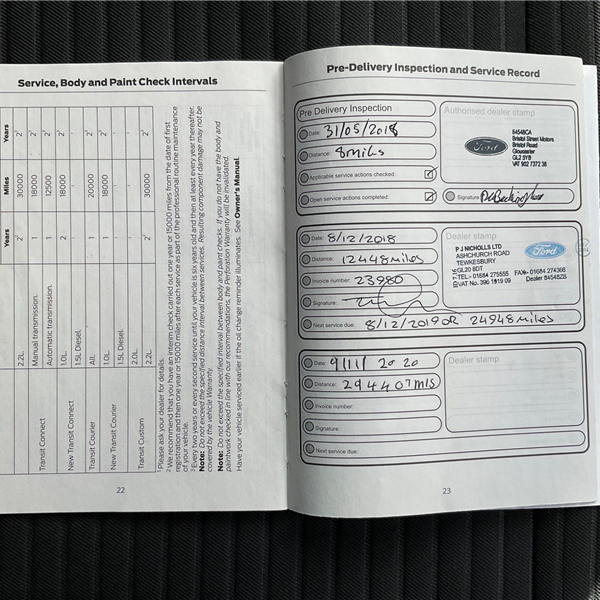 Service, Body and Paint Check Intervals
Years Miles Years
2.2L. 2² 30000 2²
Transit Connect Manual transmission. 1 18000 2²
Automatic transmission. 1 12500 2²
New Transit Connect 1.0L. 2 18000 2²
1.5L Diesel.
Transit Courier All. 1 20000 2²
New Transit Courier 1.0L. 1 18000
1.5L Diesel.
Transit Custom 2.0L. 2² 30000 2²
2.2L.
¹ Please ask your dealer for details.
² We recommend that you have an interim check carried out one year or 15000 miles from the date of first
registration and then one year or 15000 miles after each service as part of the professional routine maintenance
of your vehicle.
³ Every two years or every second service until your vehicle is six years old and then at least every year thereafter.
Note: Do not exceed the specified distance interval between services. Resulting component damage may not be
covered by the vehicle Warranty.
Note: Do not exceed the specified interval between body and paint checks. If you do not have the body and
paintwork checked in line with our recommendations, the Perforation Warranty will be invalidated.
Have your vehicle serviced earlier if the oil change reminder illuminates. See Owner's Manual.
22
Pre-Delivery Inspection and Service Record
Pre Delivery Inspection
Date: 31/05/2018
Distance: 8 miles
Applicable service actions checked:
Open service actions completed:
Authorised dealer stamp
Ford
84548CA
Bristol Street Motors
Bristol Road
Gloucester
GL2 5YB
VAT 902 7372 38
Signature:
Date: 8/12/2018
Distance: 12448 miles
Invoice number: 23980
Signature:
Next service due: 8/12/2019 OR 24948 miles
Dealer stamp
P J NICHOLLS LTD
ASHCHURCH ROAD
TEWKESBURY
GL20 8DT
TEL:- 01684 275555 FAX:- 01684 274366
VAT No. 396 1819 09 Dealer 84548ZB
Ford
Date: 9/11/2020
Distance: 29440 mls
Invoice number:
Signature:
Next service due:
Dealer stamp
23